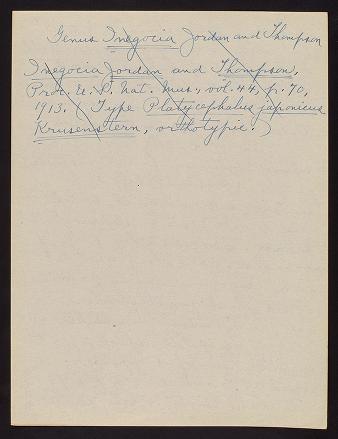 Genus Inegocia Jordan and Thompson
Inegocia Jordan and Thompson,
Proc. U. S. Nat. Mus., vol. 44, p. 70,
1913. (Type Platycephalus japonicus
Krusenstern, orthotypic.)